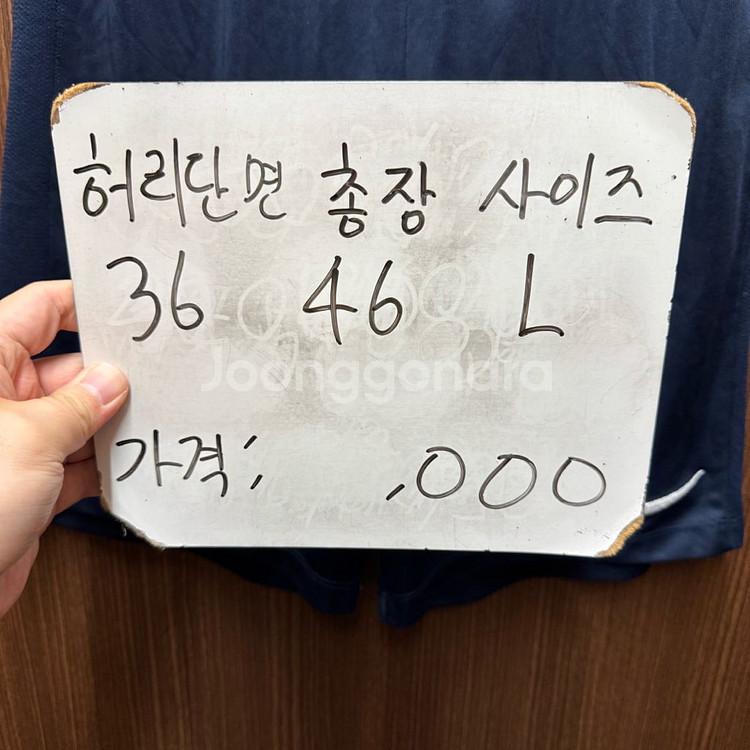 허리단면 총장 사이즈
36 46 L
Joonggonara
가격: ,000